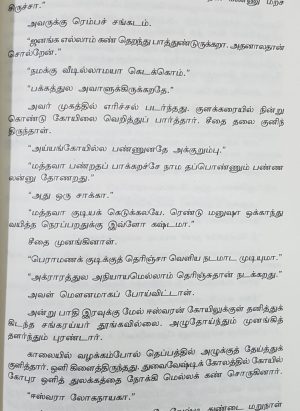 கிருச்சா."
அவருக்கு ரெம்பச் சங்கடம்.
"ஜனங்க எல்லாம் கண் தெறந்து பாத்துண்டுருக்கறா. அதனாலதான்
சொல்றேன்."
"நமக்கு வீடில்லாமயா கெடக்கொம்."
"பக்கத்துல அவாளுக்கிருக்கறதே."
அவர் முகத்தில் எரிச்சல் படர்ந்தது. குளக்கரையில் நின்று
கொண்டு கோயிலை வெறித்துப் பார்த்தார். சீதை தலை குனிந்
திருந்தாள்.
"அய்யங்கோயில்ல பண்ணுனதே அக்குறும்பு."
"மத்தவா பண்றதப் பாக்கறச்சே நாம தப்பொண்ணும் பண்ண
லன்னு தோணறது."
"அது ஒரு சாக்கா."
"மத்தவா குடியக் கெடுக்கலயே. ரெண்டு மனுஷா ஒக்காந்து
வயித்த நெரப்பறதுக்கு இவ்ளோ கஷ்டமா."
சீதை முனங்கினாள்.
"பெராமணக் குடிக்குத் தெரிஞ்சா வெளிய நடமாட முடியுமா."
"அக்ராரத்துல அநியாயமெல்லாம் தெரிஞ்சுதான் நடக்கறது."
அவள் மௌனமாகப் போய்விட்டாள்.
அன்று பாதி இரவுக்கு மேல் ஈஸ்வரன் கோயிலுக்குள் தனித்துக்
கிடந்த சங்கரய்யர் தூங்கவில்லை. அழுதோய்ந்தும் முனங்கித்
தளர்ந்தும் புரண்டார்.
காலையில் வழக்கம்போல் தெப்பத்தில் அழுக்குத் தேய்த்துக்
குளித்தார். ஒளி கிளைத்திருந்தது. துவைவேஷ்டிக் கோலத்தில் கோயில்
கோபுர ஒளித் துலக்கத்தை நோக்கி மெல்லக் கண் சொருகினார்.
"ஈஸ்வரா லோகநாயகா."
மறுநாள்